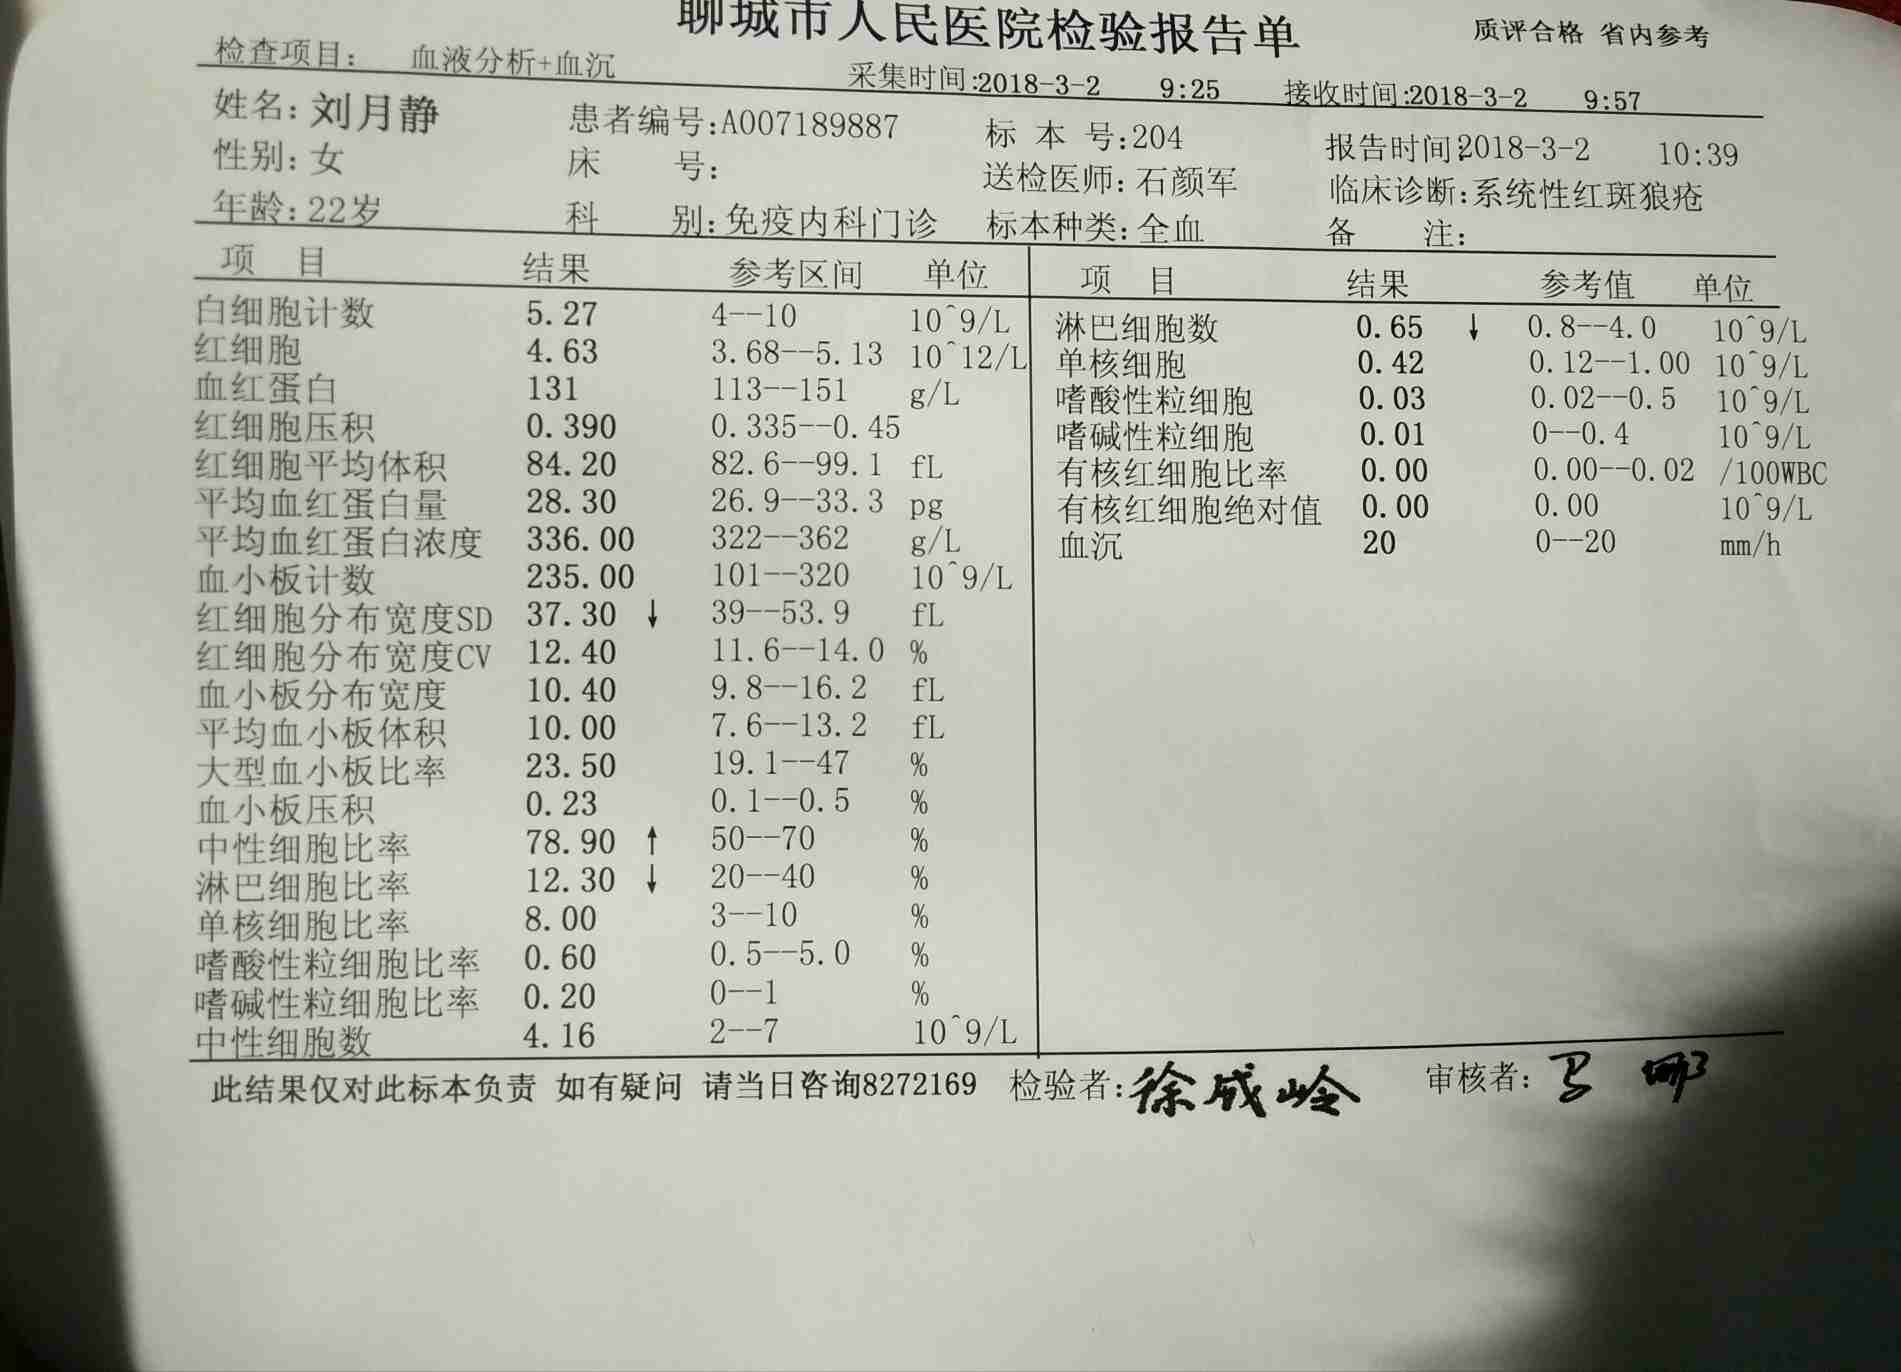 聊城市人民医院检验报告单
质评合格 省内参考
检查项目: 血液分析+血沉 采集时间:2018-3-2 9:25 接收时间:2018-3-2 9:57
姓名:刘月静 患者编号:A007189887 标 本 号:204 报告时间:2018-3-2 10:39
性别:女 床 号: 送检医师:石颜军 临床诊断:系统性红斑狼疮
年龄:22岁 科 别:免疫内科门诊 标本种类:全血 备 注:
项 目 结果 参考区间 单位
白细胞计数 5.27 4--10 10^9/L
红细胞 4.63 3.68--5.13 10^12/L
血红蛋白 131 113--151 g/L
红细胞压积 0.390 0.335--0.45
红细胞平均体积 84.20 82.6--99.1 fL
平均血红蛋白量 28.30 26.9--33.3 pg
平均血红蛋白浓度 336.00 322--362 g/L
血小板计数 235.00 101--320 10^9/L
红细胞分布宽度SD 37.30 ↓ 39--53.9 fL
红细胞分布宽度CV 12.40 11.6--14.0 %
血小板分布宽度 10.40 9.8--16.2 fL
平均血小板体积 10.00 7.6--13.2 fL
大型血小板比率 23.50 19.1--47 %
血小板压积 0.23 0.1--0.5 %
中性细胞比率 78.90 ↑ 50--70 %
淋巴细胞比率 12.30 ↓ 20--40 %
单核细胞比率 8.00 3--10 %
嗜酸性粒细胞比率 0.60 0.5--5.0 %
嗜碱性粒细胞比率 0.20 0--1 %
中性细胞数 4.16 2--7 10^9/L
项 目 结果 参考值 单位
淋巴细胞数 0.65 ↓ 0.8--4.0 10^9/L
单核细胞 0.42 0.12--1.00 10^9/L
嗜酸性粒细胞 0.03 0.02--0.5 10^9/L
嗜碱性粒细胞 0.01 0--0.4 10^9/L
有核红细胞比率 0.00 0.00--0.02 /100WBC
有核红细胞绝对值 0.00 0.00 10^9/L
血沉 20 0--20 mm/h
此结果仅对此标本负责 如有疑问 请当日咨询8272169 检验者:徐成岭 审核者: